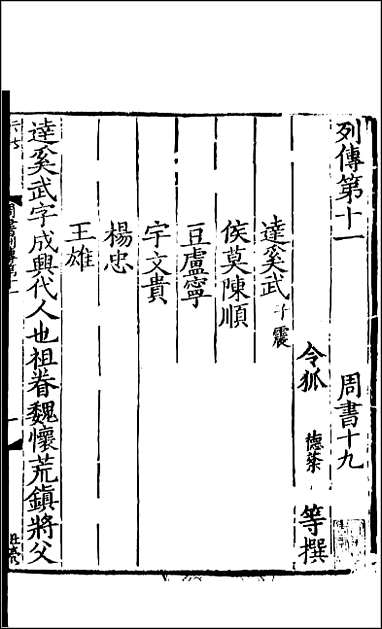 列傳第十一 周書十九
令狐 德棻 等撰
達奚武 子震
侯莫陳順
豆盧寧
宇文貴
楊忠
王雄
達奚武字成興代人也祖眷魏懷荒鎮將父